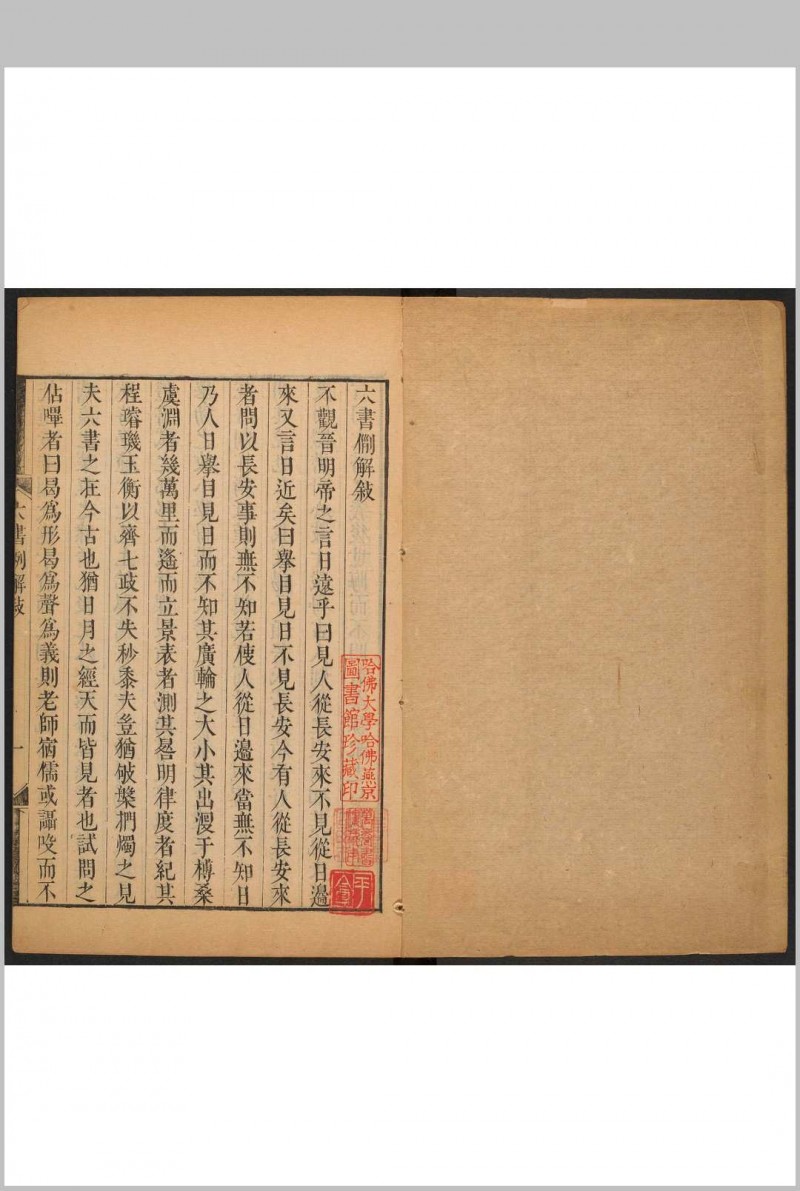 六書例解敍
不觀晉明帝之言日遠乎曰見人從長安來不見從日邉
來又言日近矣曰擧目見日不見長安今有人從長安來
者問以長安事則無不知若使人從日邉來當無不知日
乃人日擧目見日而不知其廣輪之大小其出溭于榑桑
虞淵者幾萬里而遙而立景表者測其晷明律度者紀其
程璿璣玉衡以齊七政不失秒黍夫豈猶𢻹槃捫燭之見
夫六書之在今古也猶日月之經天而皆見者也試問之
佔嗶者曰曷爲形曷爲聲爲義則老師病儒或謳唆而不
六書例解敍
一
哈佛大學哈佛燕京
圖書館珍藏印